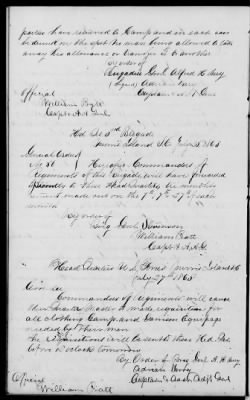 parties have returned to Camp and in each case
be drunk on the spot. No man being allowed to take
away his allowance or transfer it to another
By order of
Brigadier Genl Alfred H. Terry
(Signed) Adrian Terry
Captain & A. A. Genl
Official
William
Capt & A. A. Genl
Hd Qrs 3rd Brigade
Morris Island SC July 25 1863
General Orders
No
Commanders of
Regiments of this Brigade will have forwarded
to these Head Quarters
made out on the 7th of each
month
By order of
Brig Genl Stevenson
William
Capt & A. A. G.
Head Quarters U. S. Forces Morris Island SC
July 27th 1863
Circular
Commanders of Regiments will cause
their Quarter Masters to make requisition for
all Clothing Camp and Garrison Equipage
needed by their men
The requisitions will be sent to these Hd. Qrs.
O'clock tomorrow
By Order of Brig Genl A. H. Terry
Adrian Terry
Captain & Asst Adjt Genl
Official
William